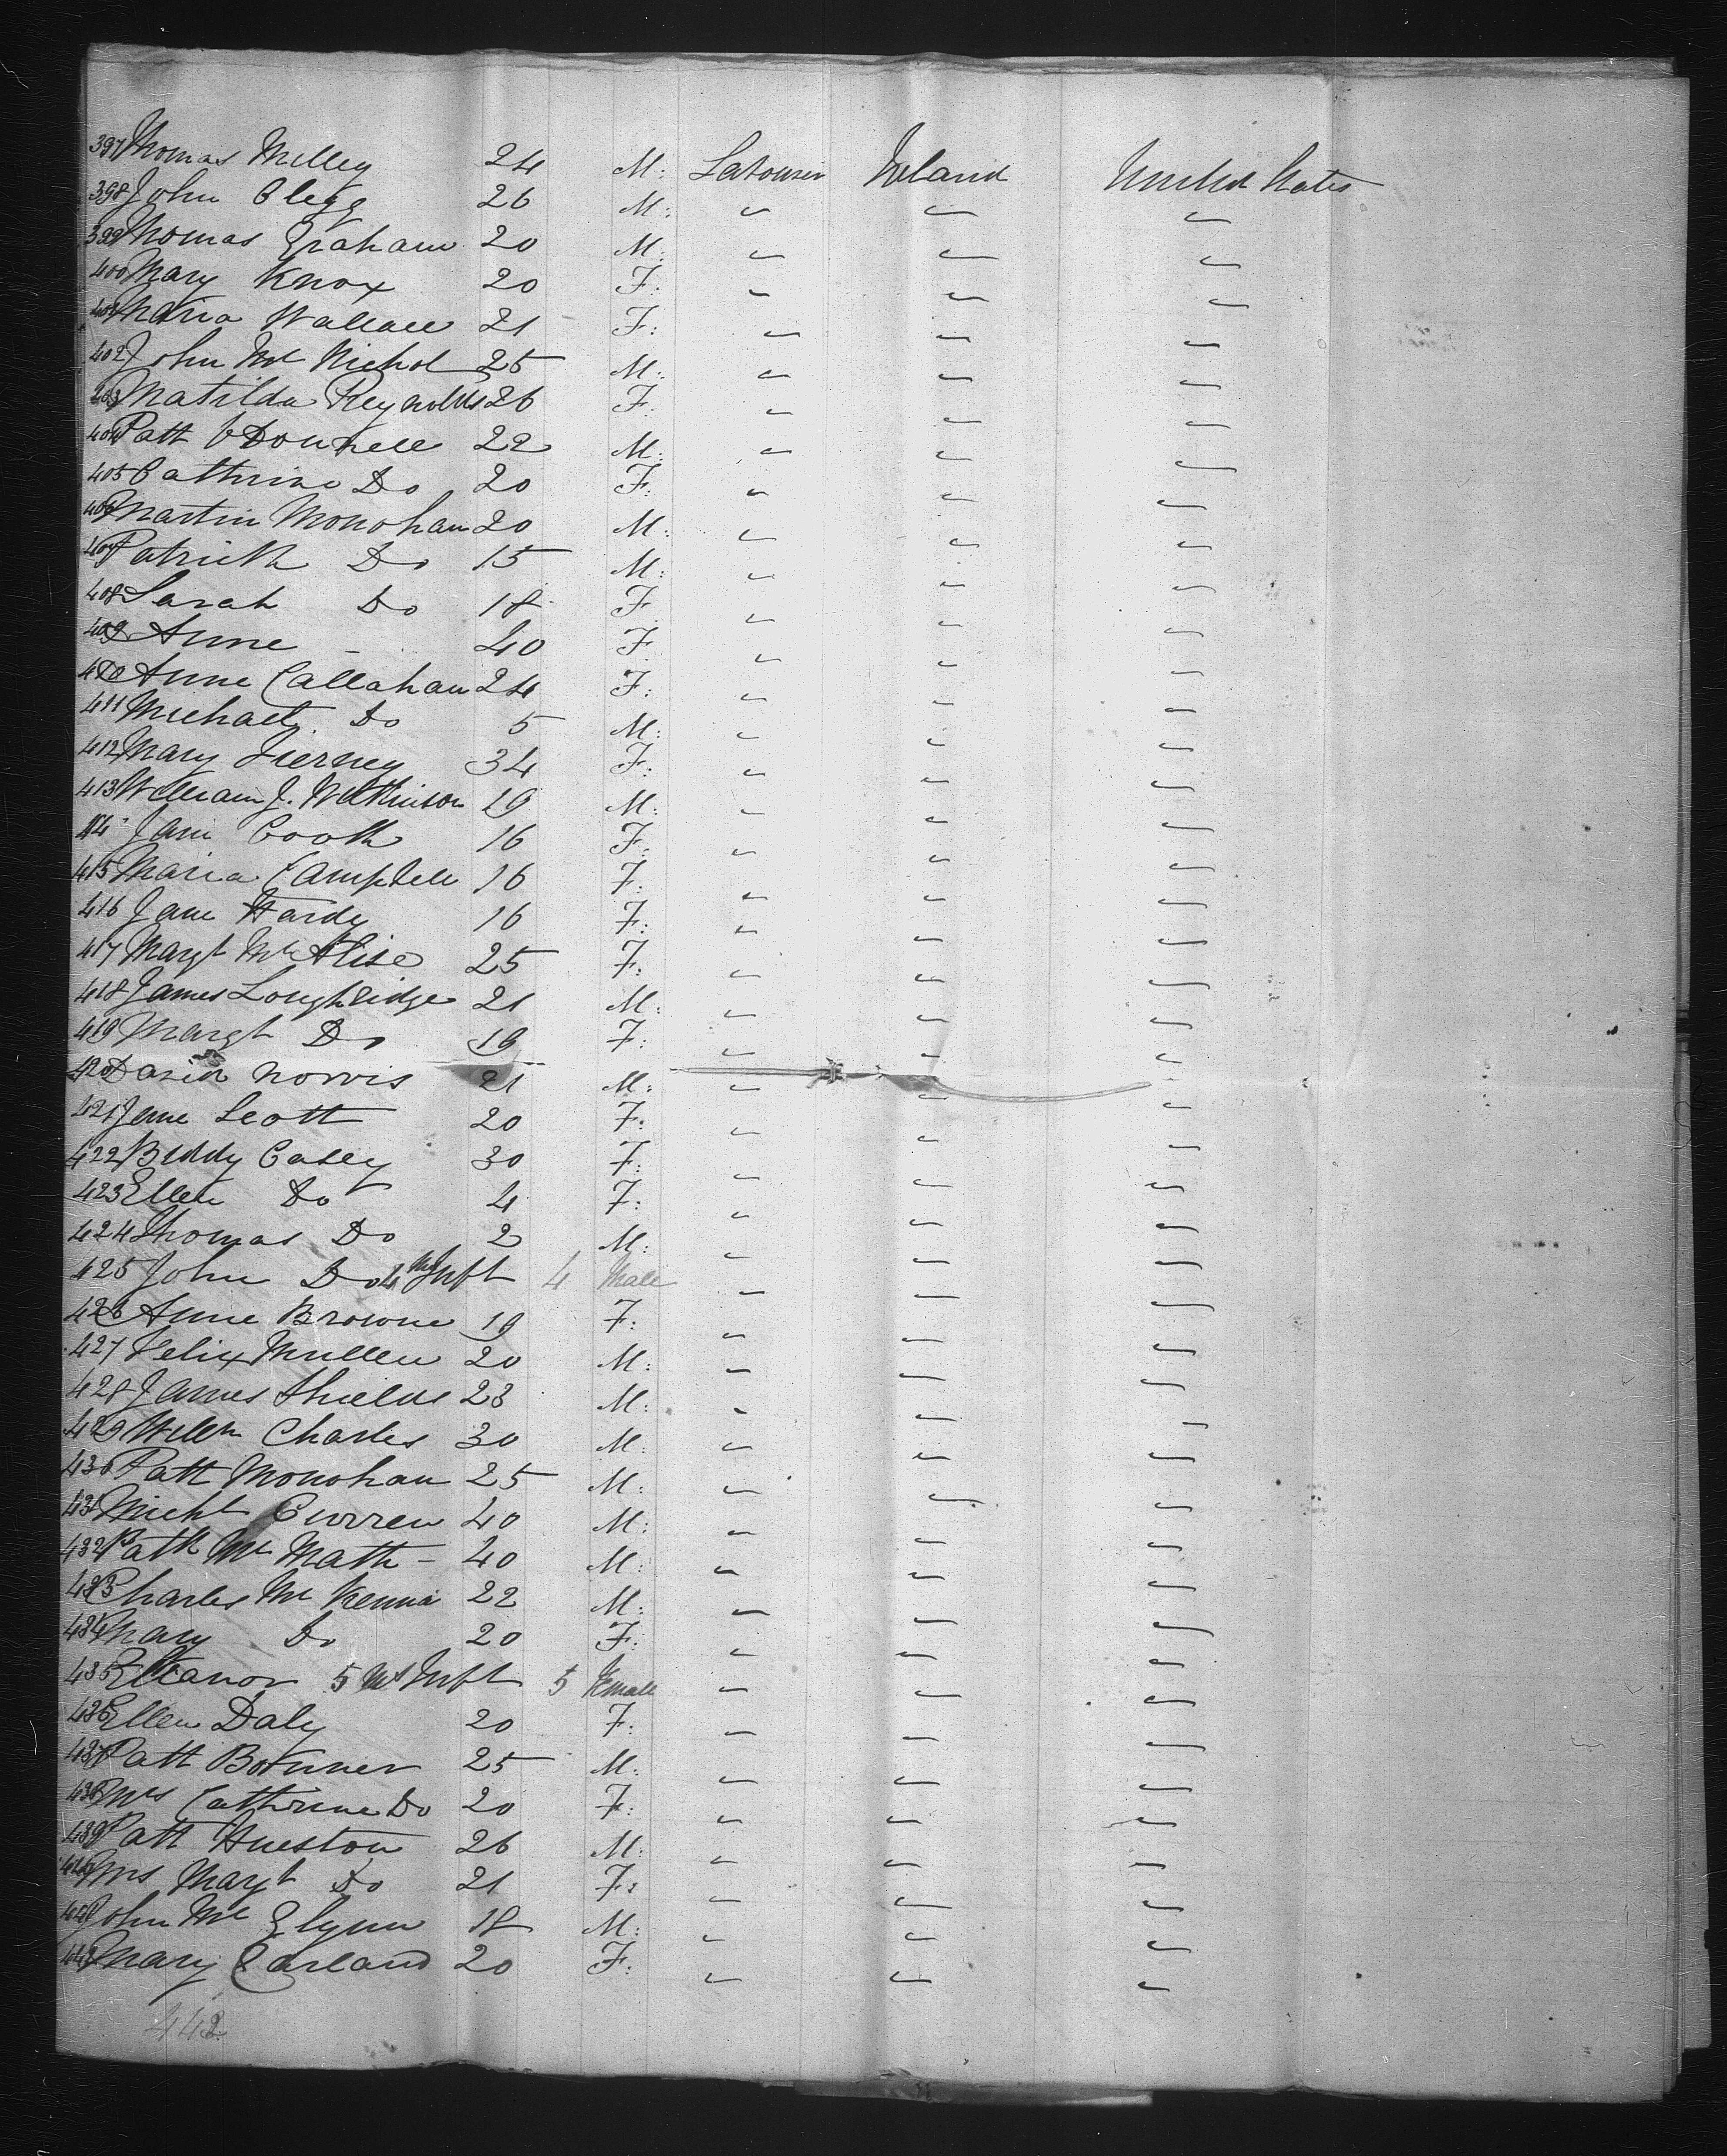 397 Thomas Milley 24 M: Labourer Ireland United States
398 John Clegg 26 M: " " "
399 Thomas Graham 20 M: " " "
400 Mary Knox 20 F: " " "
401 Maria Wallace 21 F: " " "
402 John Mc Nichol 25 M: " " "
403 Matilda Reynolds 26 F: " " "
404 Patt O Donnell 22 M: " " "
405 Cathrine Do 20 F: " " "
406 Martin Monohan 20 M: " " "
407 Patrick Do 15 M: " " "
408 Sarah Do 18 F " " "
409 Anne - 40 F " " "
410 Anne Callahan 24 F: " " "
411 Michael Do 5 M: " " "
412 Mary Tierney 34 F: " " "
413 William J. Wilkinson 19 M: " " "
414 Jane Cook 16 F: " " "
415 Maria Campbell 16 F: " " "
416 Jane Hardy 16 F: " " "
417 Margt Mc Alise 25 F: " " "
418 James Loughridge 21 M: " " "
419 Margt Do 19 F: " " "
420 David Norris 21 M: " " "
421 Jane Scott 20 F: " " "
422 Biddy Casey 30 F: " " "
423 Ellen Do 4 F: " " "
424 Thomas Do 2 M: " " "
425 John Do 4 Ms Inft 4 Male " " "
426 Anne Browne 19 F: " " "
427 Felix Mullen 20 M: " " "
428 James Shields 23 M: " " "
429 Willm Charles 30 M: " " "
430 Patt Monohan 25 M: " " "
431 Michl Curren 40 M: " " "
432 Patk Mc Math - 40 M: " " "
433 Charles Mc Kenna 22 M: " " "
434 Mary Do 20 F: " " "
435 Elleanor 5 Ms Inft 5 Female " " "
436 Ellen Daly 20 F: " " "
437 Patt Bonner 25 M: " " "
438 Mrs Cathrine Do 20 F: " " "
439 Patt Hueston 26 M: " " "
440 Mrs Margt Do 21 F: " " "
441 John Mc Glynn 18 M: " " "
442 Mary Carland 20 F: " " "
442